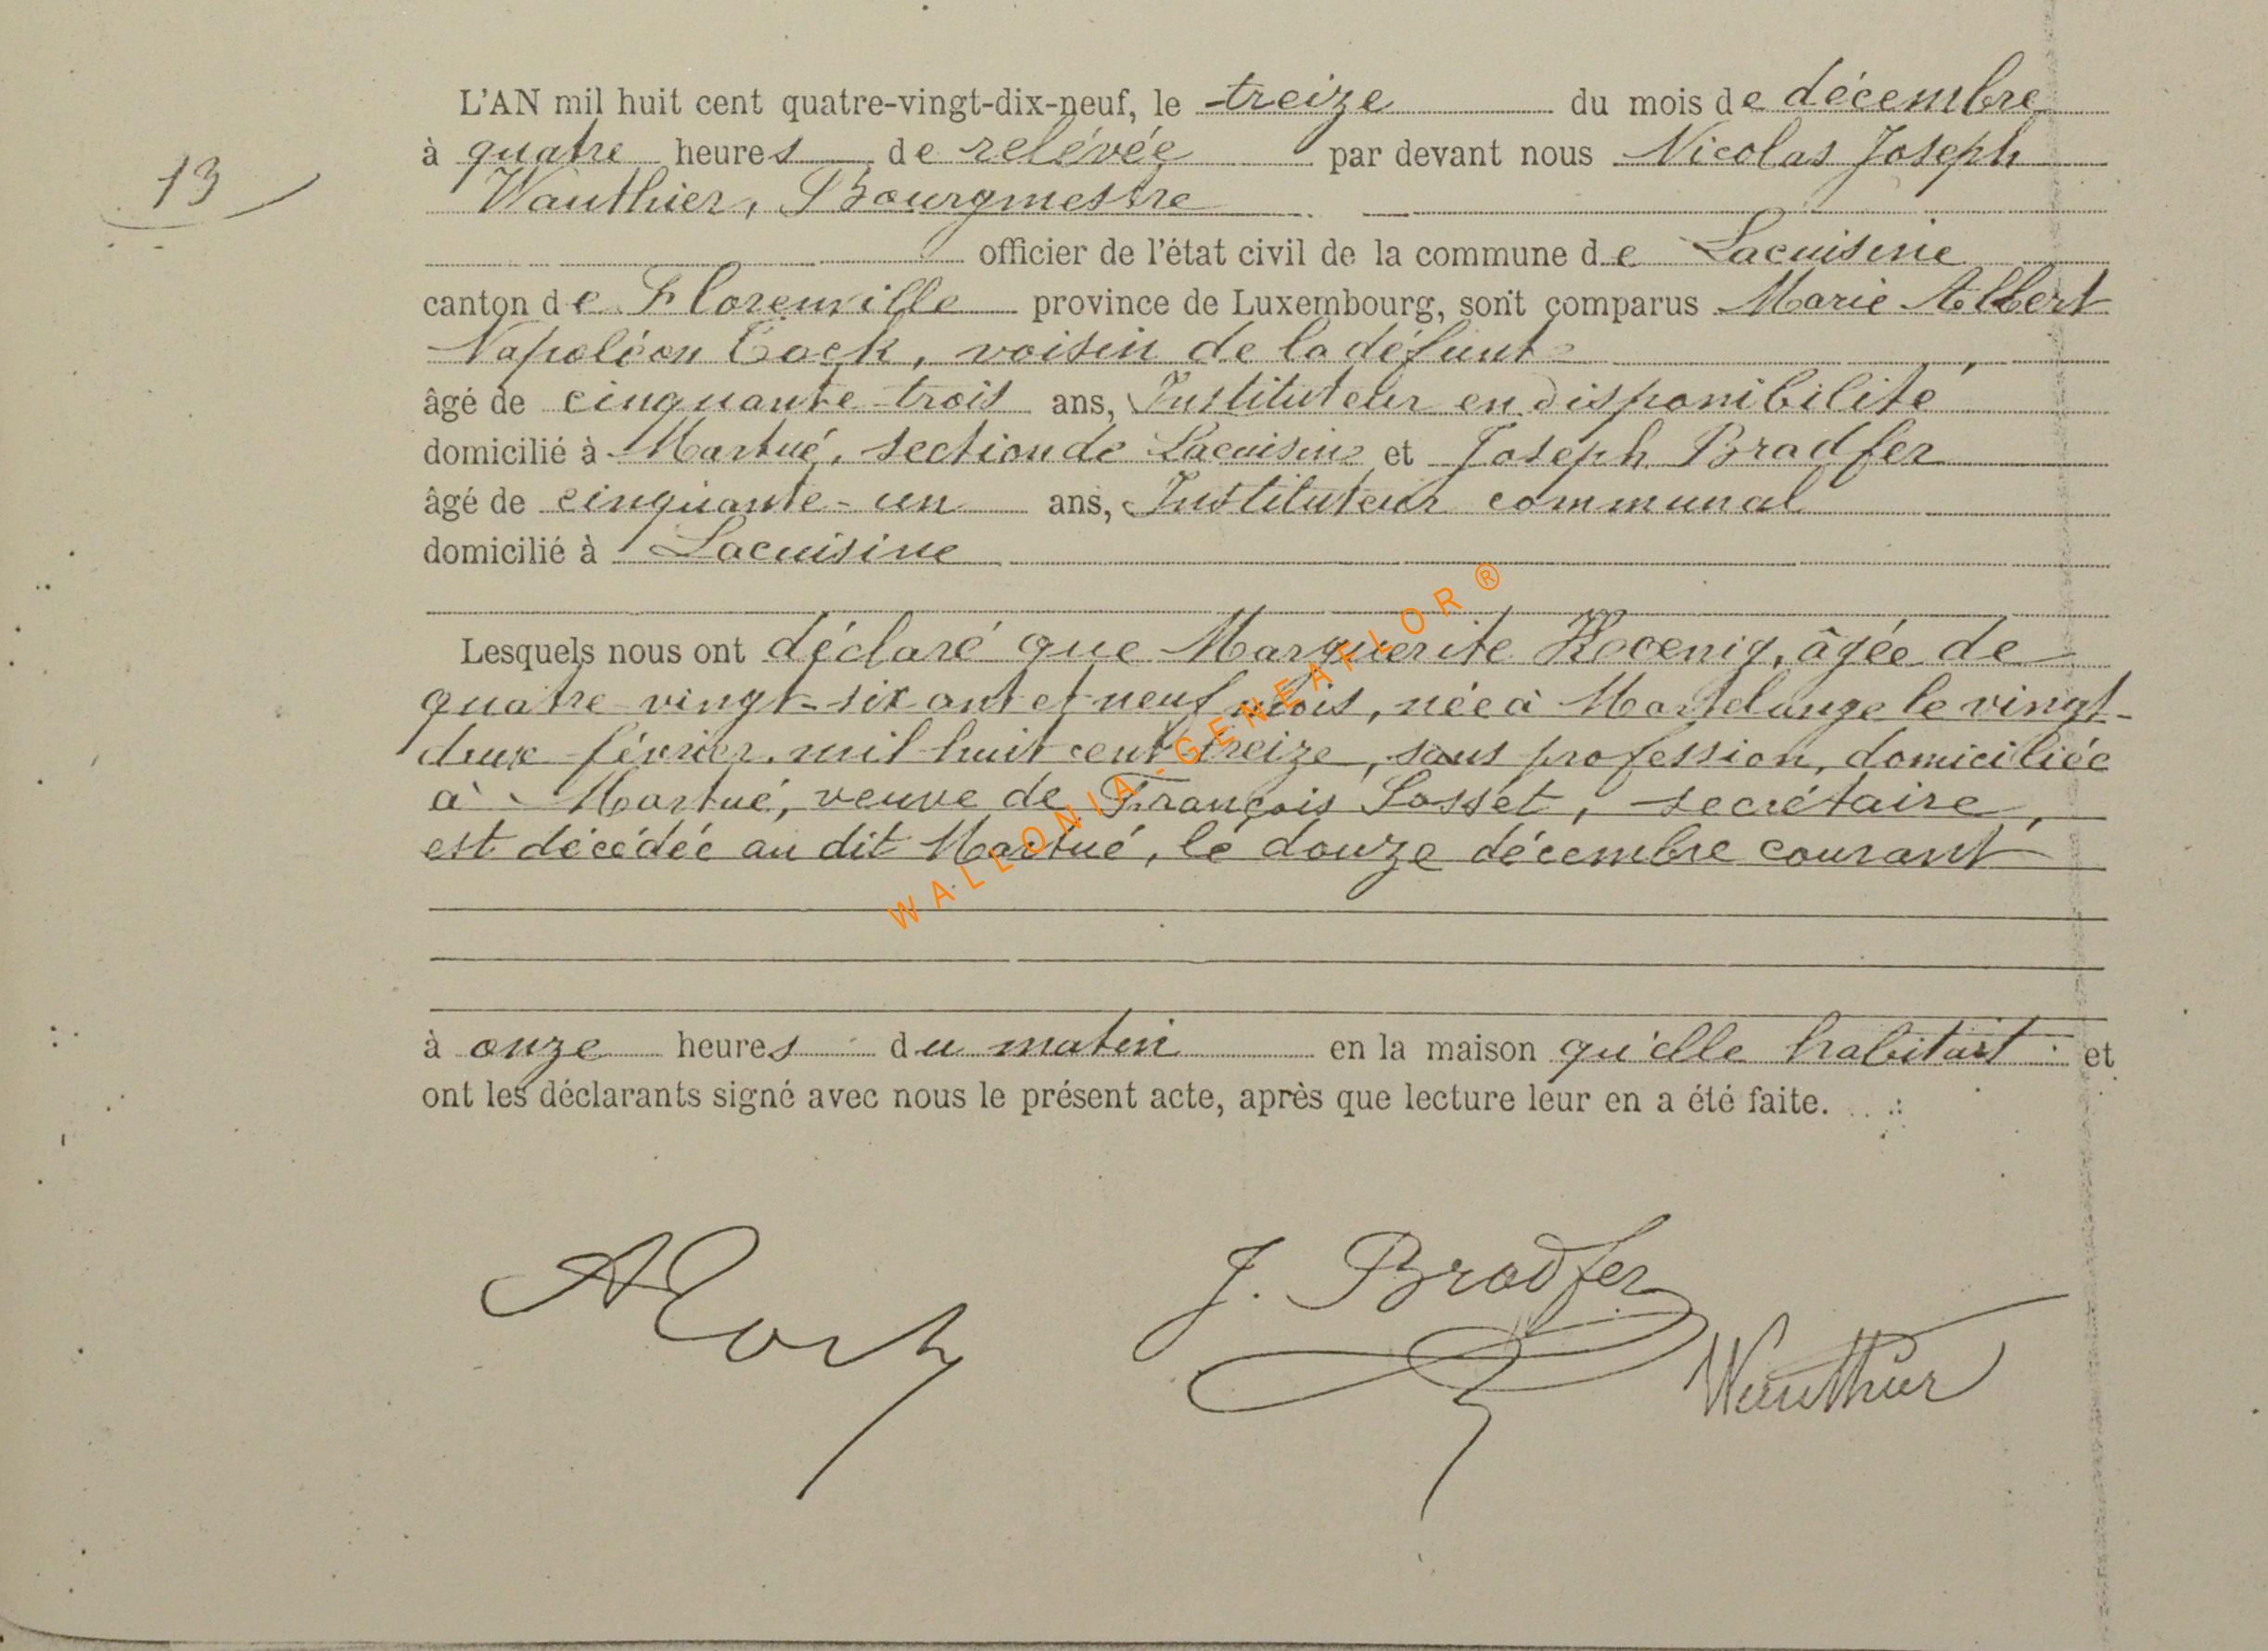 13
L'AN mil huit cent quatre-vingt-dix-neuf, le treize du mois de décembre
à quatre heures de relévée par devant nous Nicolas Joseph
Wauthier, Bourgmestre
officier de l'état civil de la commune de Lacuisine
canton de Florenville province de Luxembourg, sont comparus Marie Albert
Napoléon Cock, voisin de la défunte
âgé de cinquante-trois ans, Instituteur en disponibilité
domicilié à Martué, section de Lacuisine et Joseph Bradfer
âgé de cinquante-un ans, Instituteur communal
domicilié à Lacuisine
Lesquels nous ont déclaré que Marguerite Koenig, âgée de
quatre vingt-six ans et neuf mois, née à Martelange le vingt-
deux février mil huit cent treize, sans profession, domiciliée
à Martué, veuve de François Sosset, secrétaire,
est décédée au dit Martué, le douze décembre courant
à onze heures du matin en la maison qu'elle habitait et
ont les déclarants signé avec nous le présent acte, après que lecture leur en a été faite.
ACock
J. Bradfer
Wauthier
WALLONIA.GENEAFLOR ®